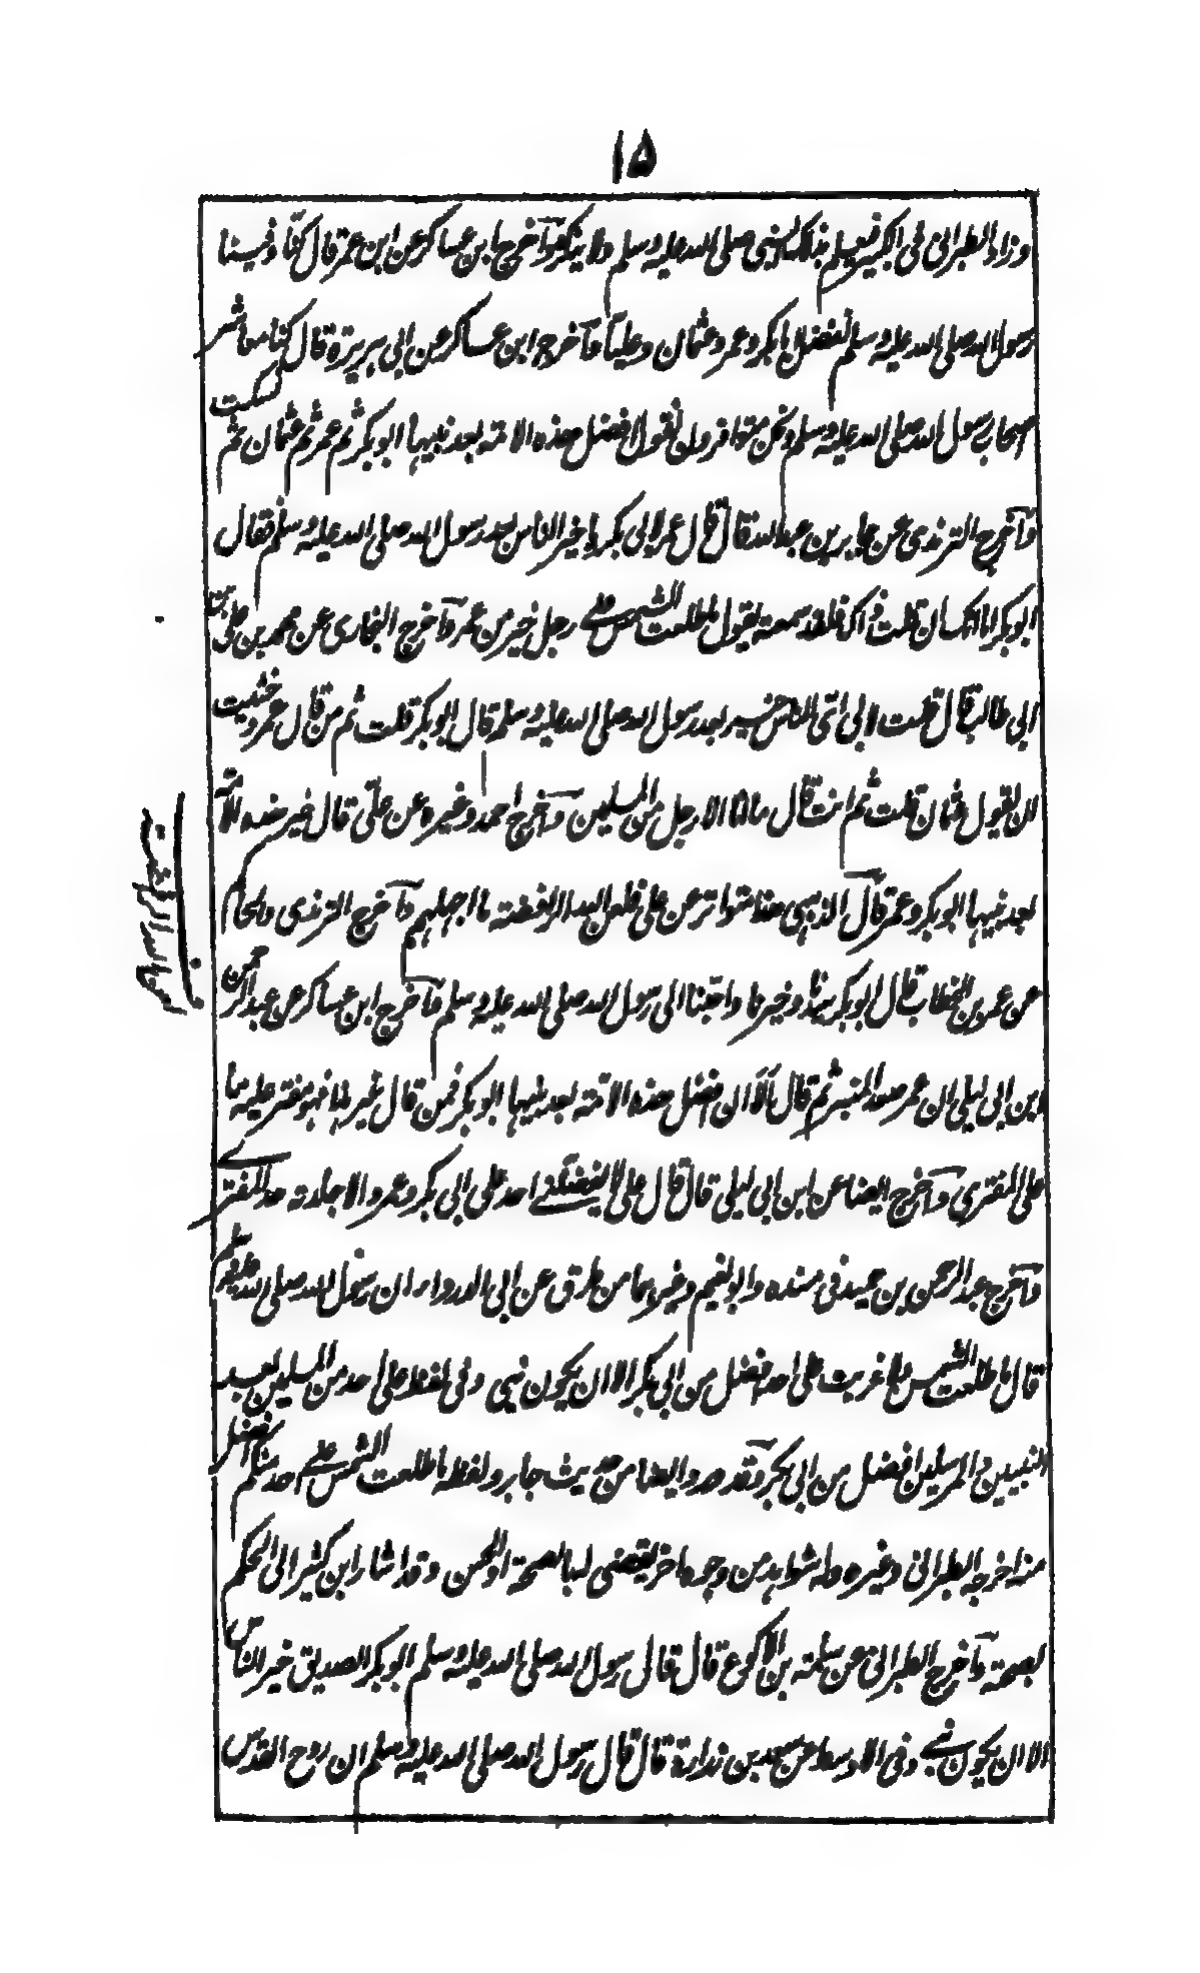 ۱۵
وزاد الطبرانى فى الكبير فيعلم بذلك النبى صلى الله عليه وسلم ولا ينكره وآخرج ابن عساكر عن ابن عمر قال كنا وفينا
رسول الله صلى الله عليه وسلم نفضل ابا بكر وعمر وعثمان وعليا وآخرج ابن عساكر عن ابى هريرة قال كنا معاشر
اصحاب رسول الله صلى الله عليه وسلم ونحن متوافرون نقول افضل هذه الامة بعد نبيها ابو بكر ثم عمر ثم عثمان ثم نسكت
وآخرج الترمذى عن جابر بن عبد الله قال قال عمر لابى بكر يا خير الناس بعد رسول الله صلى الله عليه وسلم فقال
ابو بكر اما انك ان قلت ذاك فلقد سمعته يقول ما طلعت الشمس على رجل خير من عمر وآخرج البخارى عن محمد بن على بن
ابى طالب قال قلت لابى اى الناس خير بعد رسول الله صلى الله عليه وسلم قال ابو بكر قلت ثم من قال عمر وخشيت
ان يقول عثمان قلت ثم انت قال ما انا الا رجل من المسلمين وآخرج احمد وغيره عن على قال خير هذه الامة
بعد نبيها ابو بكر وعمر قال الذهبى هذا متواتر عن على فلعن الله الرافضة ما اجهلهم وآخرج الترمذى والحاكم
عن عمر بن الخطاب قال ابو بكر سيدنا وخيرنا واحبنا الى رسول الله صلى الله عليه وسلم وآخرج ابن عساكر عن عبد الرحمن
ابن ابى ليلى ان عمر صعد المنبر ثم قال الا ان افضل هذه الامة بعد نبيها ابو بكر فمن قال غير هذا فهو مفتر عليه ما
على المفترى وآخرج ايضا عن ابن ابى ليلى قال قال على لا يفضلنى احد على ابى بكر وعمر الا جلدته حد المفترى
وآخرج عبد الرحمن بن حميد فى مسنده وابو نعيم وغيرهما من طرق عن ابى الدرداء ان رسول الله صلى الله عليه وسلم
قال ما طلعت الشمس ولا غربت على احد افضل من ابى بكر الا ان يكون نبى وفى لفظ على احد من المسلمين بعد
النبيين والمرسلين افضل من ابى بكر وقد ورد ايضا من حديث جابر ولفظه ما طلعت الشمس على احد منكم افضل
منه اخرجه الطبرانى وغيره وله شواهد من وجوه اخر يقتضى لها بالصحة او الحسن وقد اشار ابن كثير الى الحكم
بصحته وآخرج الطبرانى عن سلمة بن الاكوع قال قال رسول الله صلى الله عليه وسلم ابو بكر الصديق خير الناس
الا ان يكون نبى وفى الاوسط عن سعد بن زرارة قال قال رسول الله صلى الله عليه وسلم ان روح القدس